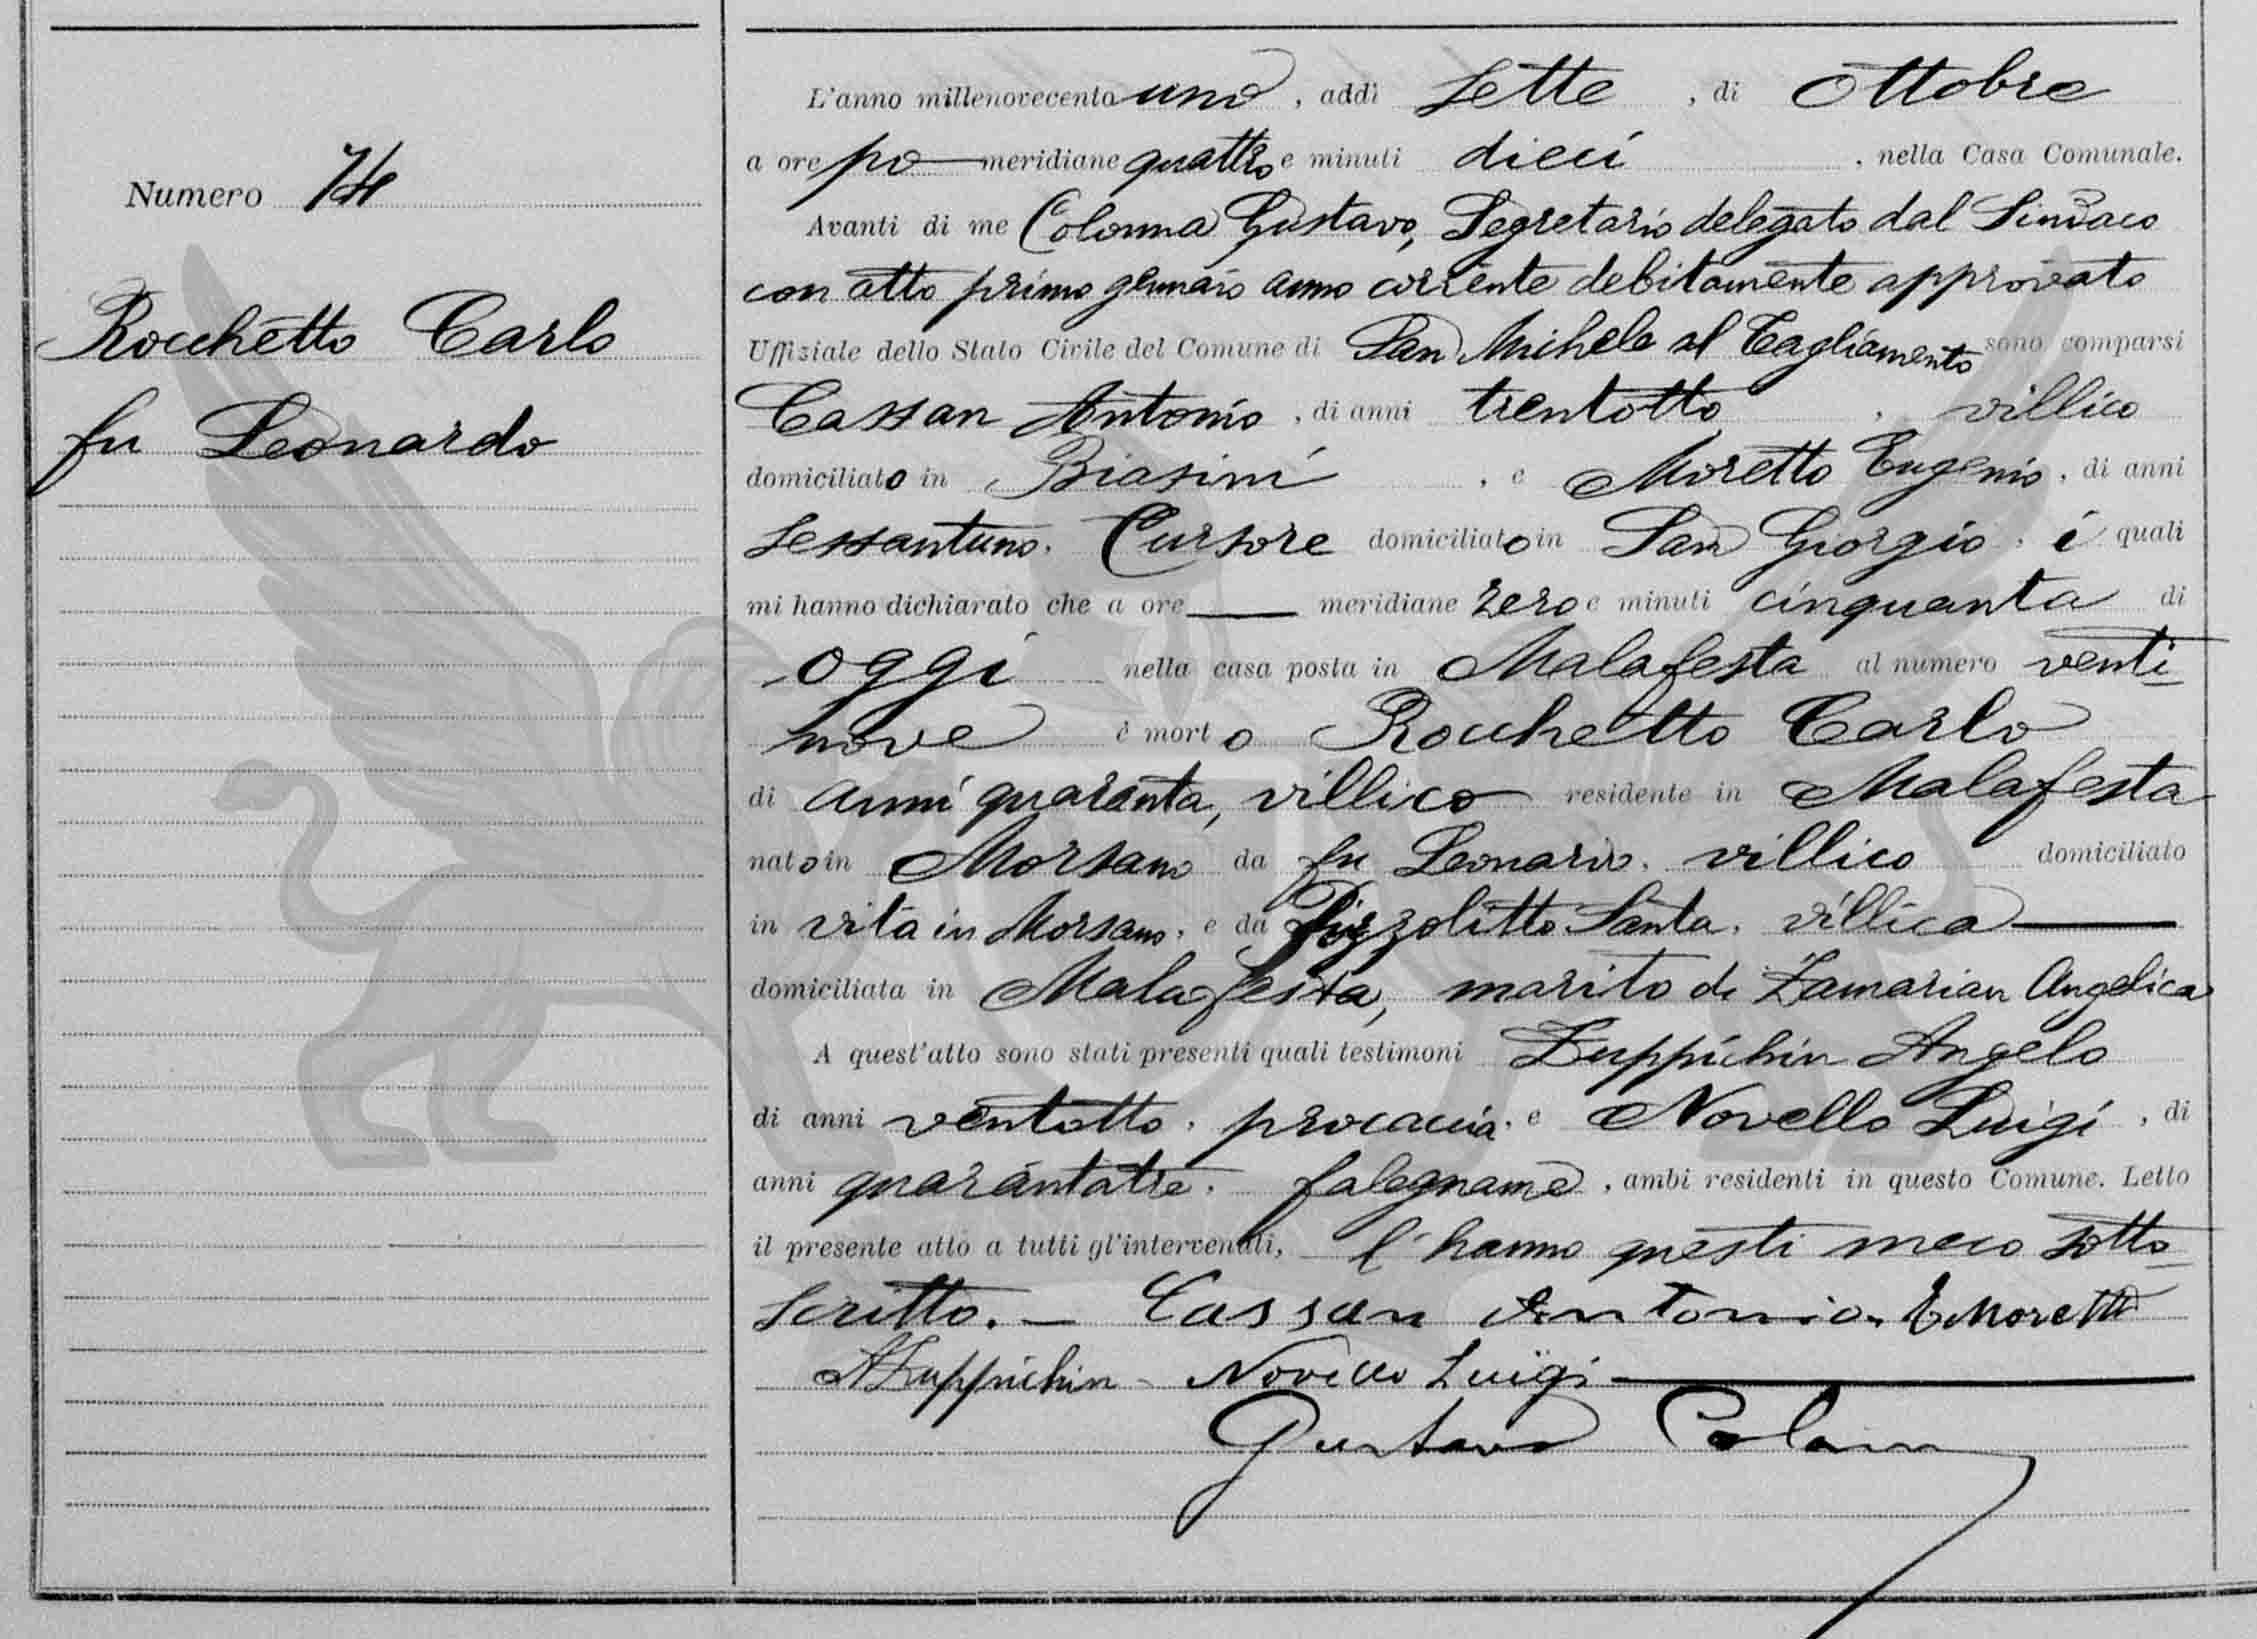 Numero 74
Rocchetto Carlo
fu Leonardo
L'anno millenovecento uno, addi sette, di Ottobre
a ore po meridiane quattro e minuti dieci, nella Casa Comunale.
Avanti di me Colonna Gustavo, Segretario delegato dal Sindaco
con atto primo gennaio anno corrente debitamente approvato
Uffiziale dello Stato Civile del Comune di San Michele al Tagliamento sono comparsi
Cassan Antonio, di anni trentotto, villico
domiciliato in Biasini, e Moretto Eugenio, di anni
sessantuno, Cursore domiciliato in San Giorgio, i quali
mi hanno dichiarato che a ore — meridiane zero e minuti cinquanta di
oggi nella casa posta in Malafesta al numero venti-
nove è morto Rocchetto Carlo
di anni quaranta, villico residente in Malafesta
nato in Morsano da fu Leonardo, villico domiciliato
in vita in Morsano, e da Pizzolitto Santa, villica —
domiciliata in Malafesta, marito di Zamarian Angelica
A quest'atto sono stati presenti quali testimoni Zuppichin Angelo
di anni ventotto, procaccia, e Novello Luigi, di
anni quarantatre, falegname, ambi residenti in questo Comune. Letto
il presente atto a tutti gl'intervenuti, l'hanno questi meco sotto-
scritto. — Cassan Antonio. E Moretti
AZuppichin - Novello Luigi —
Gustavo Colonna